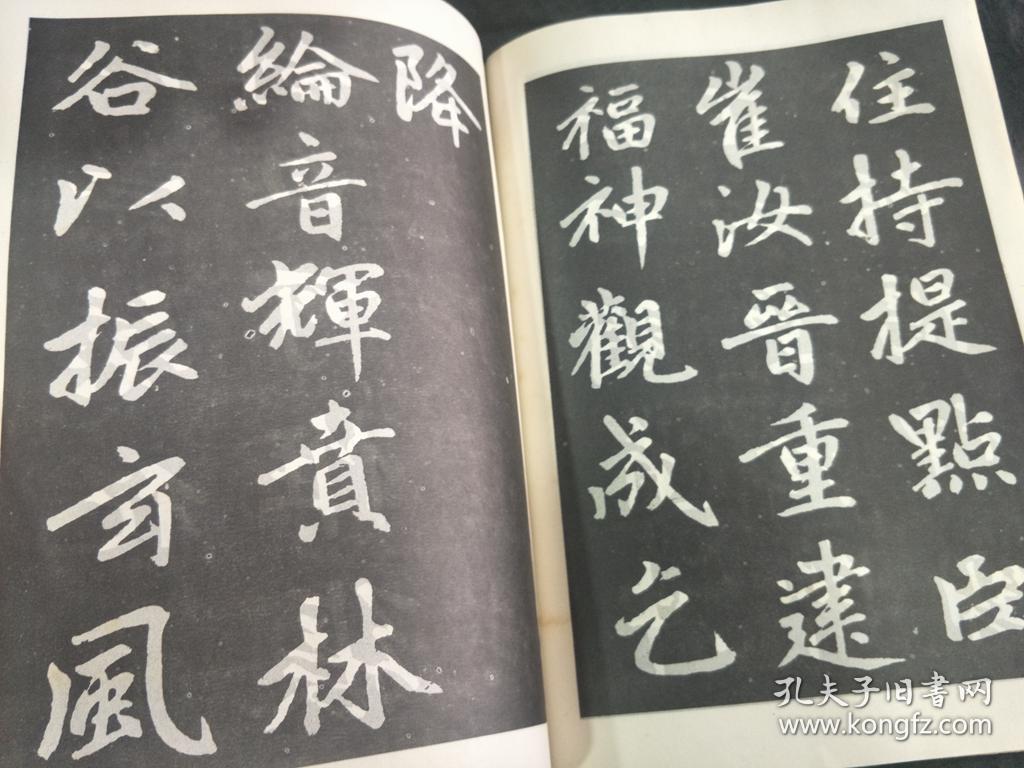 住持提點臣
崔汝晉重建
福神觀成乞
降
綸音輝賁林
谷以振玄風
孔夫子旧書网
www.kongfz.com